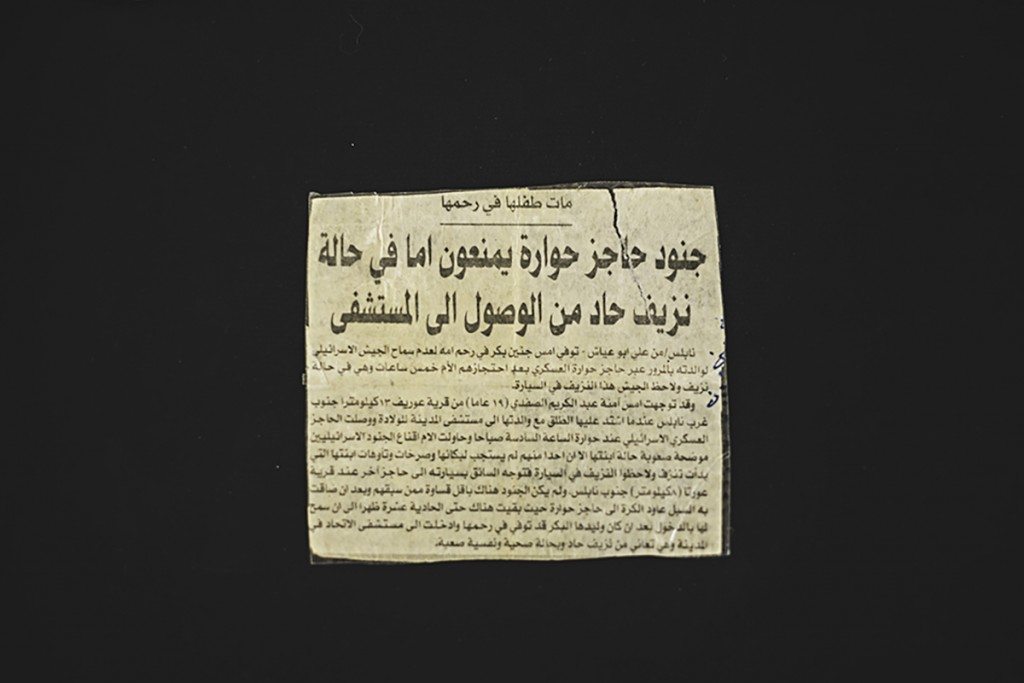 مات طفلها في رحمها
جنود حاجز حوارة يمنعون اما في حالة
نزيف حاد من الوصول الى المستشفى
نابلس/من علي ابو عياش - توفي امس جنين بكر في رحم امه لعدم سماح الجيش الاسرائيلي
لوالدته بالمرور عبر حاجز حوارة العسكري بعد احتجازهم الام خمس ساعات وهي في حالة
نزيف ولاحظ الجيش هذا النزيف في السيارة.
وقد توجهت امس امنة عبد الكريم الصفدي (١٩ عاما) من قرية عوريف ١٣ كيلومترا جنوب
غرب نابلس عندما اشتد عليها الطلق مع والدتها الى مستشفى المدينة للولادة ووصلت الحاجز
العسكري الاسرائيلي عند حوارة الساعة السادسة صباحا وحاولت الام اقناع الجنود الاسرائيليين
موضحة صعوبة حالة ابنتها الا ان احدا منهم لم يستجب لبكائها وصرخات وتاوهات ابنتها التي
بدأت تنزف ولاحظوا النزيف في السيارة فتوجه السائق بسيارته الى حاجز اخر عند قرية
عورتا (٨ كيلومتر) جنوب نابلس، ولم يكن الجنود هناك باقل قساوة ممن سبقهم وبعد ان ضاقت
به السبل عاود الكرة الى حاجز حوارة حيث بقيت هناك حتى الحادية عشرة ظهرا الى ان سمح
لها بالدخول بعد ان كان وليدها البكر قد توفي في رحمها وادخلت الى مستشفى الاتحاد في
المدينة وهي تعاني من نزيف حاد وبحالة صحية ونفسية صعبة.